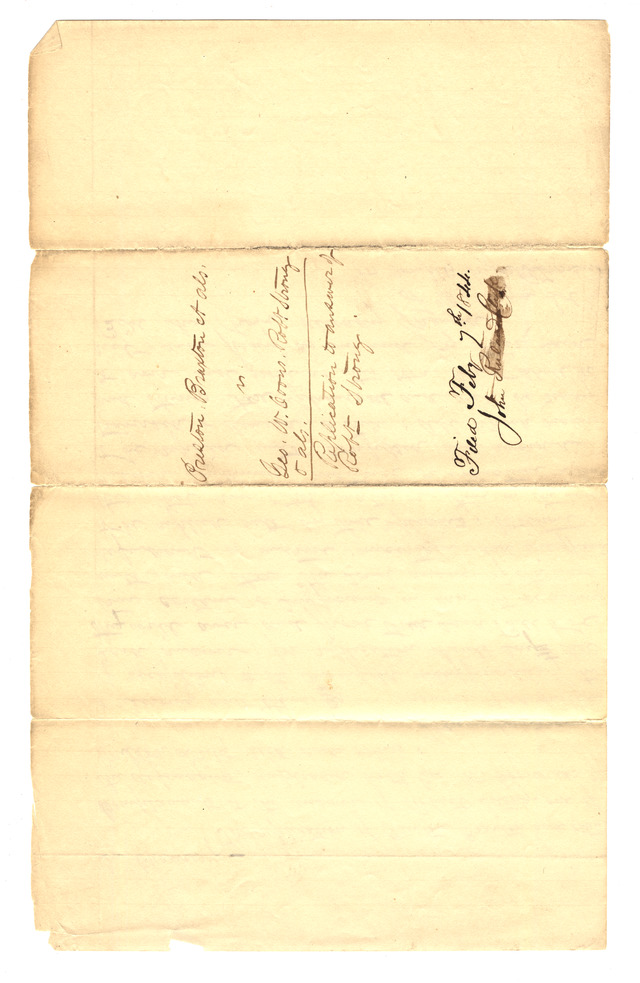 Preston, Braxton et als.
vs
Geo. W. Coons, Robt Strong
& als.
Replication to answer of
Robt Strong.
Filed Feby 7th 1844.
John